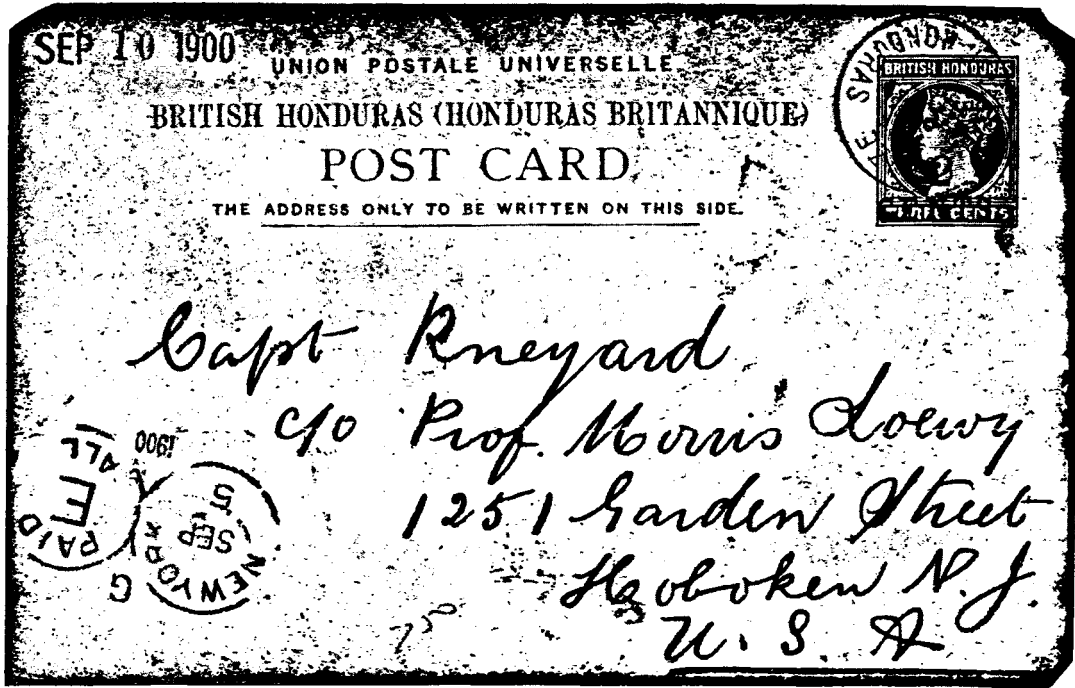 SEP 10 1900
UNION POSTALE UNIVERSELLE
BRITISH HONDURAS (HONDURAS BRITANNIQUE)
POST CARD.
THE ADDRESS ONLY TO BE WRITTEN ON THIS SIDE.
HONDURAS
BRITISH HONDURAS
THREE CENTS
Capt Rneyard
c/o Prof. Morris Loewy
1251 Garden Street
Hoboken N.J.
U.S.A
PAID
E
ALL
1900
NEW YORK
SEP
5
G